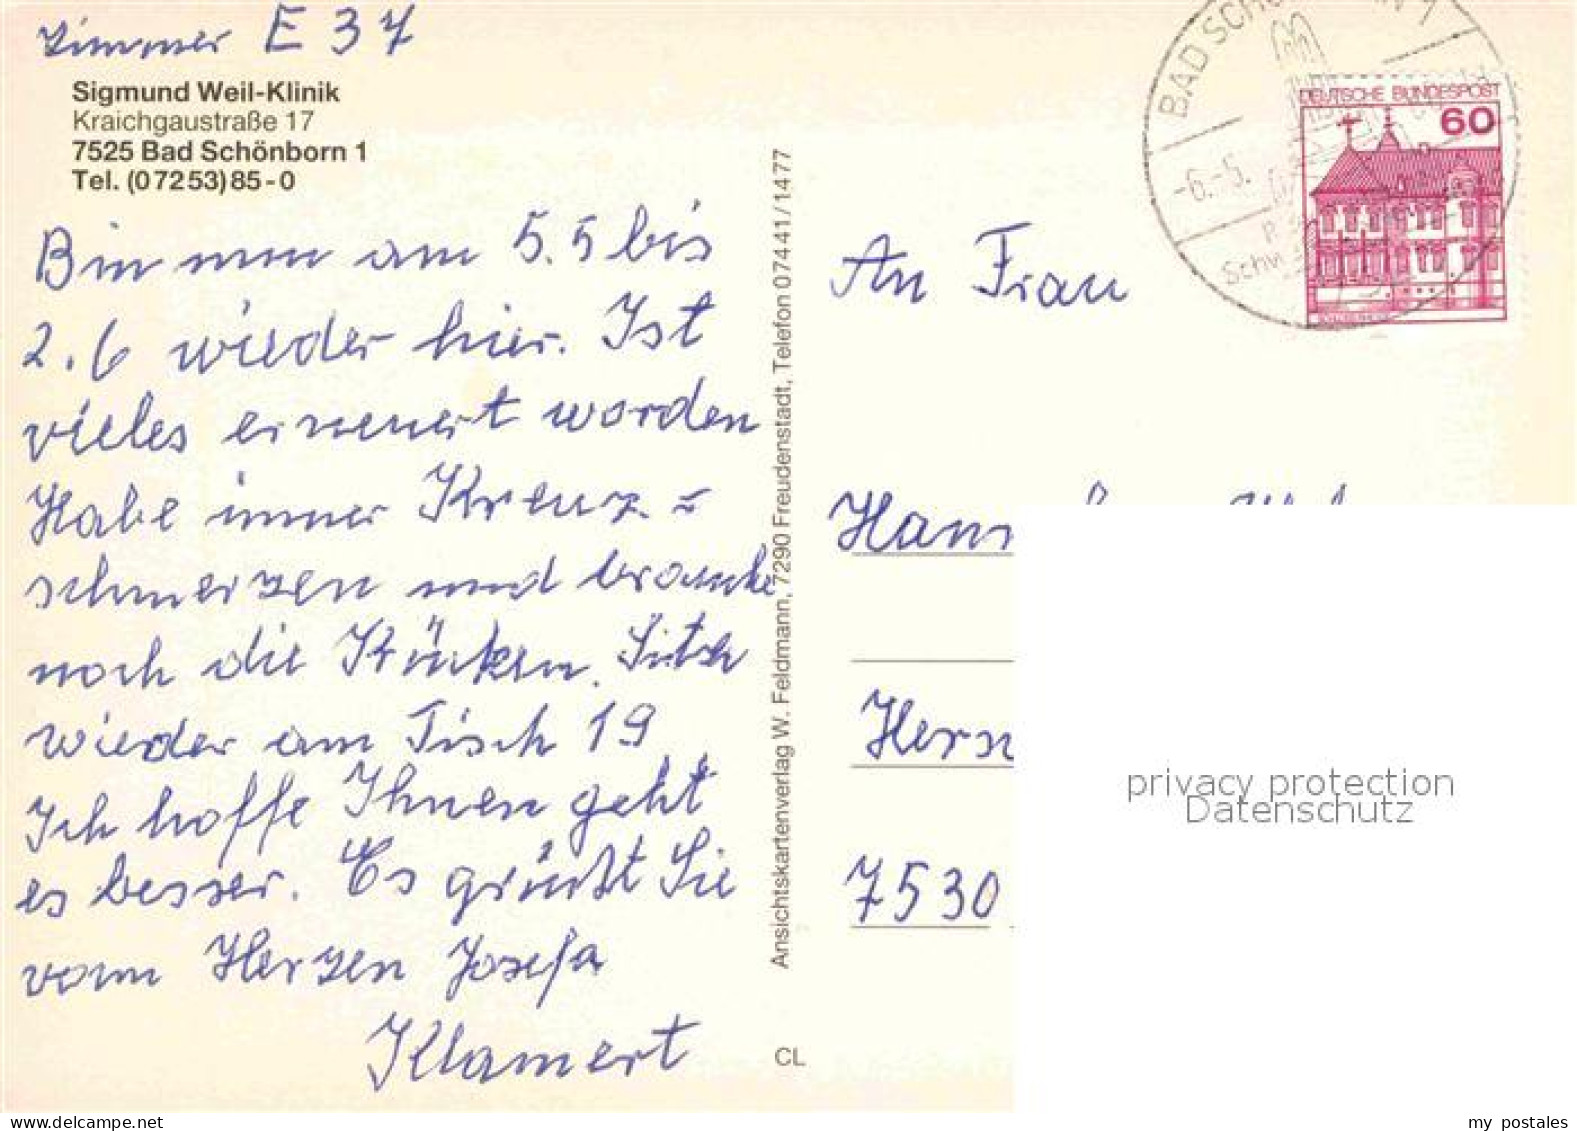 Zimmer E 37
Sigmund Weil-Klinik
Kraichgaustraße 17
7525 Bad Schönborn 1
Tel. (07253) 85-0
Bin nun am 5.5 bis
2.6 wieder hier. Ist
vieles erneuert worden
Habe immer Kreuz=
schmerzen und brauche
noch die Krücken. Sitze
wieder am Tisch 19
Ich hoffe Ihnen geht
es besser. Es grüßt Sie
vom Herzen Josefa
Klamert
Ansichtskartenverlag W. Feldmann, 7290 Freudenstadt, Telefon 07441/1477
CL
BAD SCHÖNBORN 1
-6.-5.
DEUTSCHE BUNDESPOST
60
An Frau
7530
privacy protection
Datenschutz
www.delcampe.net
my_postales